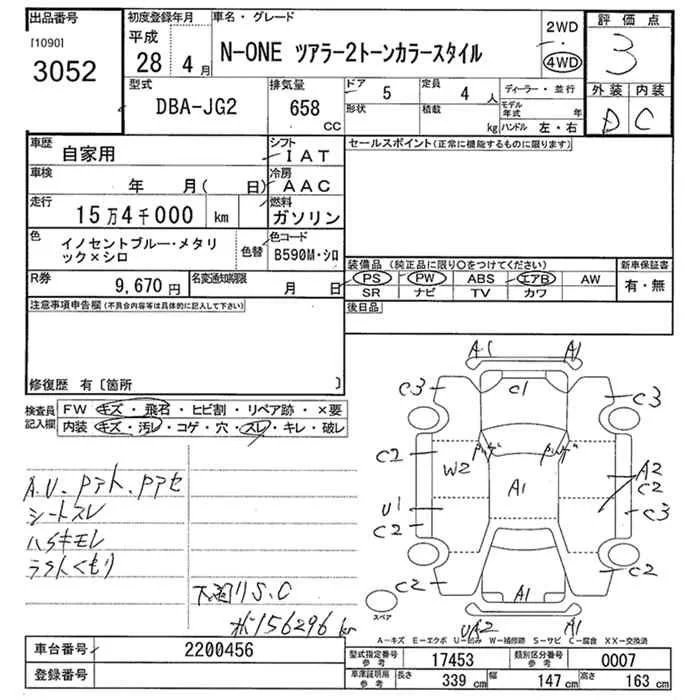 出品番号
[1090]
3052
初度登録年月
平成
28 4月
車名・グレード
N-ONE ツアラー2トーンカラースタイル
2WD
4WD
評価点
3
外装 内装
D C
型式
DBA-JG2
排気量
658
CC
ドア
5
定員
4人
形状
積載
kg
ディーラー・並行
モデル年式 年
ハンドル 左・右
車歴
自家用
シフト
IAT
車検
年 月( 日)
冷房
AAC
走行
15万4千000 km
燃料
ガソリン
色
イノセントブルー・メタリ
ック×シロ
色替
色コード
B590M・シロ
R券
9,670円
名変通知期限
月 日
セールスポイント(正常に機能するものに限ります)
装備品 (純正品に限り○をつけてください)
PS PW ABS エアB AW
SR ナビ TV カワ
新車保証書
有・無
後日品
注意事項申告欄(不具合内容等は具体的に記入して下さい)
修復歴 有〔箇所 〕
検査員
記入欄
FW キズ・飛石・ヒビ割・リペア跡・×要
内装 キズ・汚レ・コゲ・穴・スレ・キレ・破レ
シートスレ
下廻りS.C
156296 km
A1 A1
C3 C1 C3
C2 W2 A1 A2
C2
U1 C3
C2
C2 A1 C2
UA2 A1
スペア
A-キズ E-エクボ U-凹み W-補修跡 S-サビ C-腐食 XX-交換済
車台番号
2200456
登録番号
型式指定番号
参考
17453
類別区分番号
参考
0007
車庫証明用
参考
長さ
339 cm
幅
147 cm
高さ
163 cm